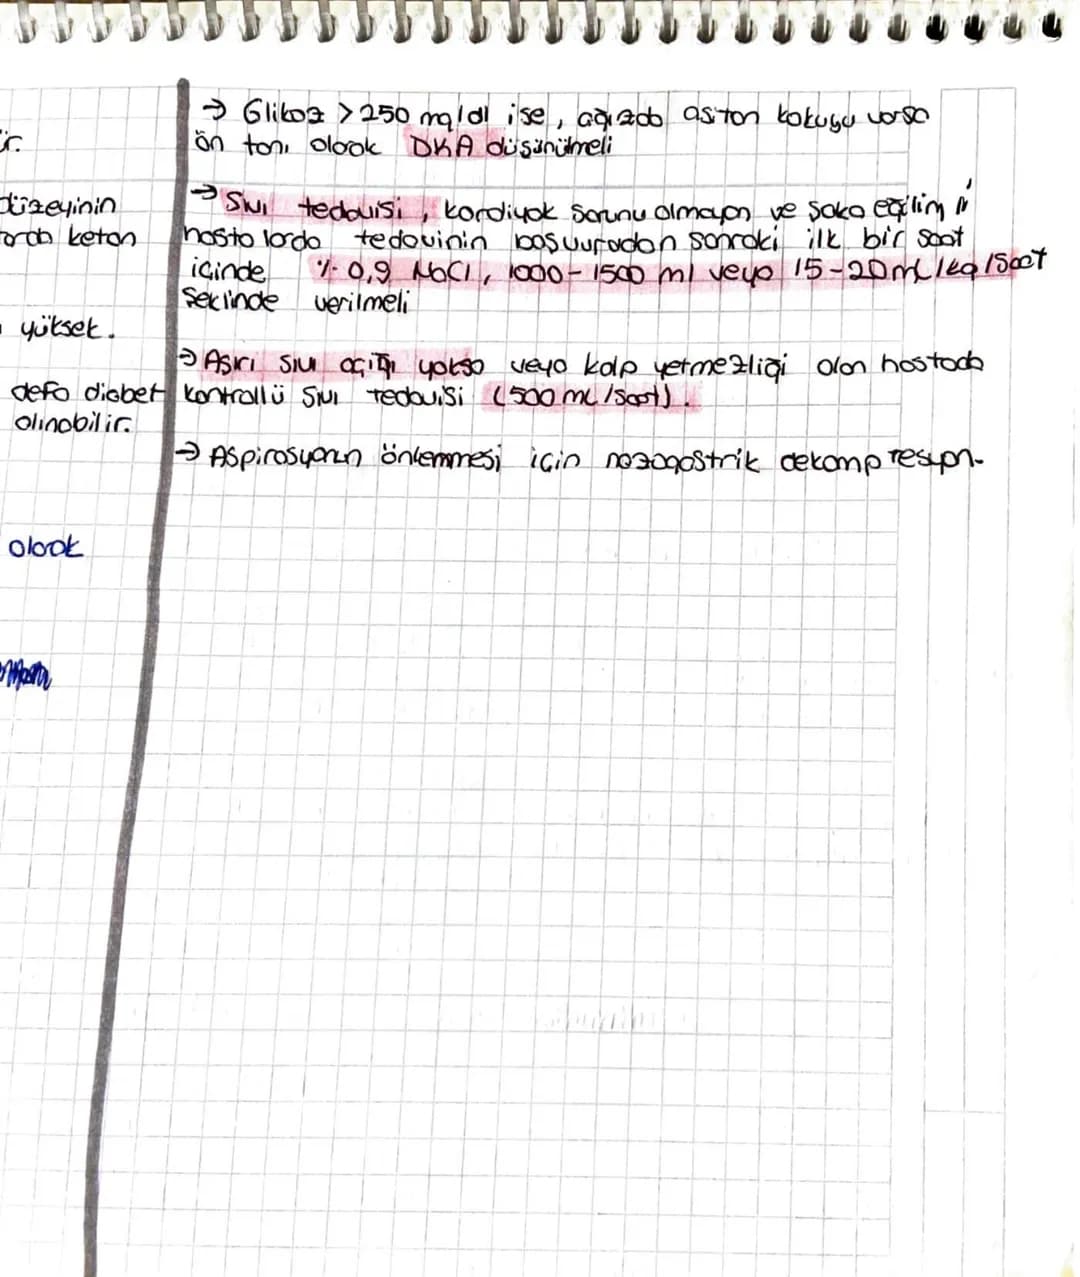 → Glikoz > 250 mg/dl ise, ağızda aseton kokusu varsa
ön tanı olarak DKA düşünülmeli
→ Sıvı tedavisi, kardiyak sorunu olmayan ve şoka eğilimli
hastalarda tedavinin başvurudan sonraki ilk bir saat
içinde % 0,9 NaCl, 1000-1500 ml veya 15-20 mL/kg/saat
şeklinde verilmeli
→ Aşırı sıvı açığı yoksa veya kalp yetmezliği olan hastada
kontrollü sıvı tedavisi (500 mL/saat).
→ Aspirasyonun önlenmesi için nazogastrik dekompresyon.
ir.
düzeyinin
keton
yüksek.
defa diabet
alınabilir.
olarak